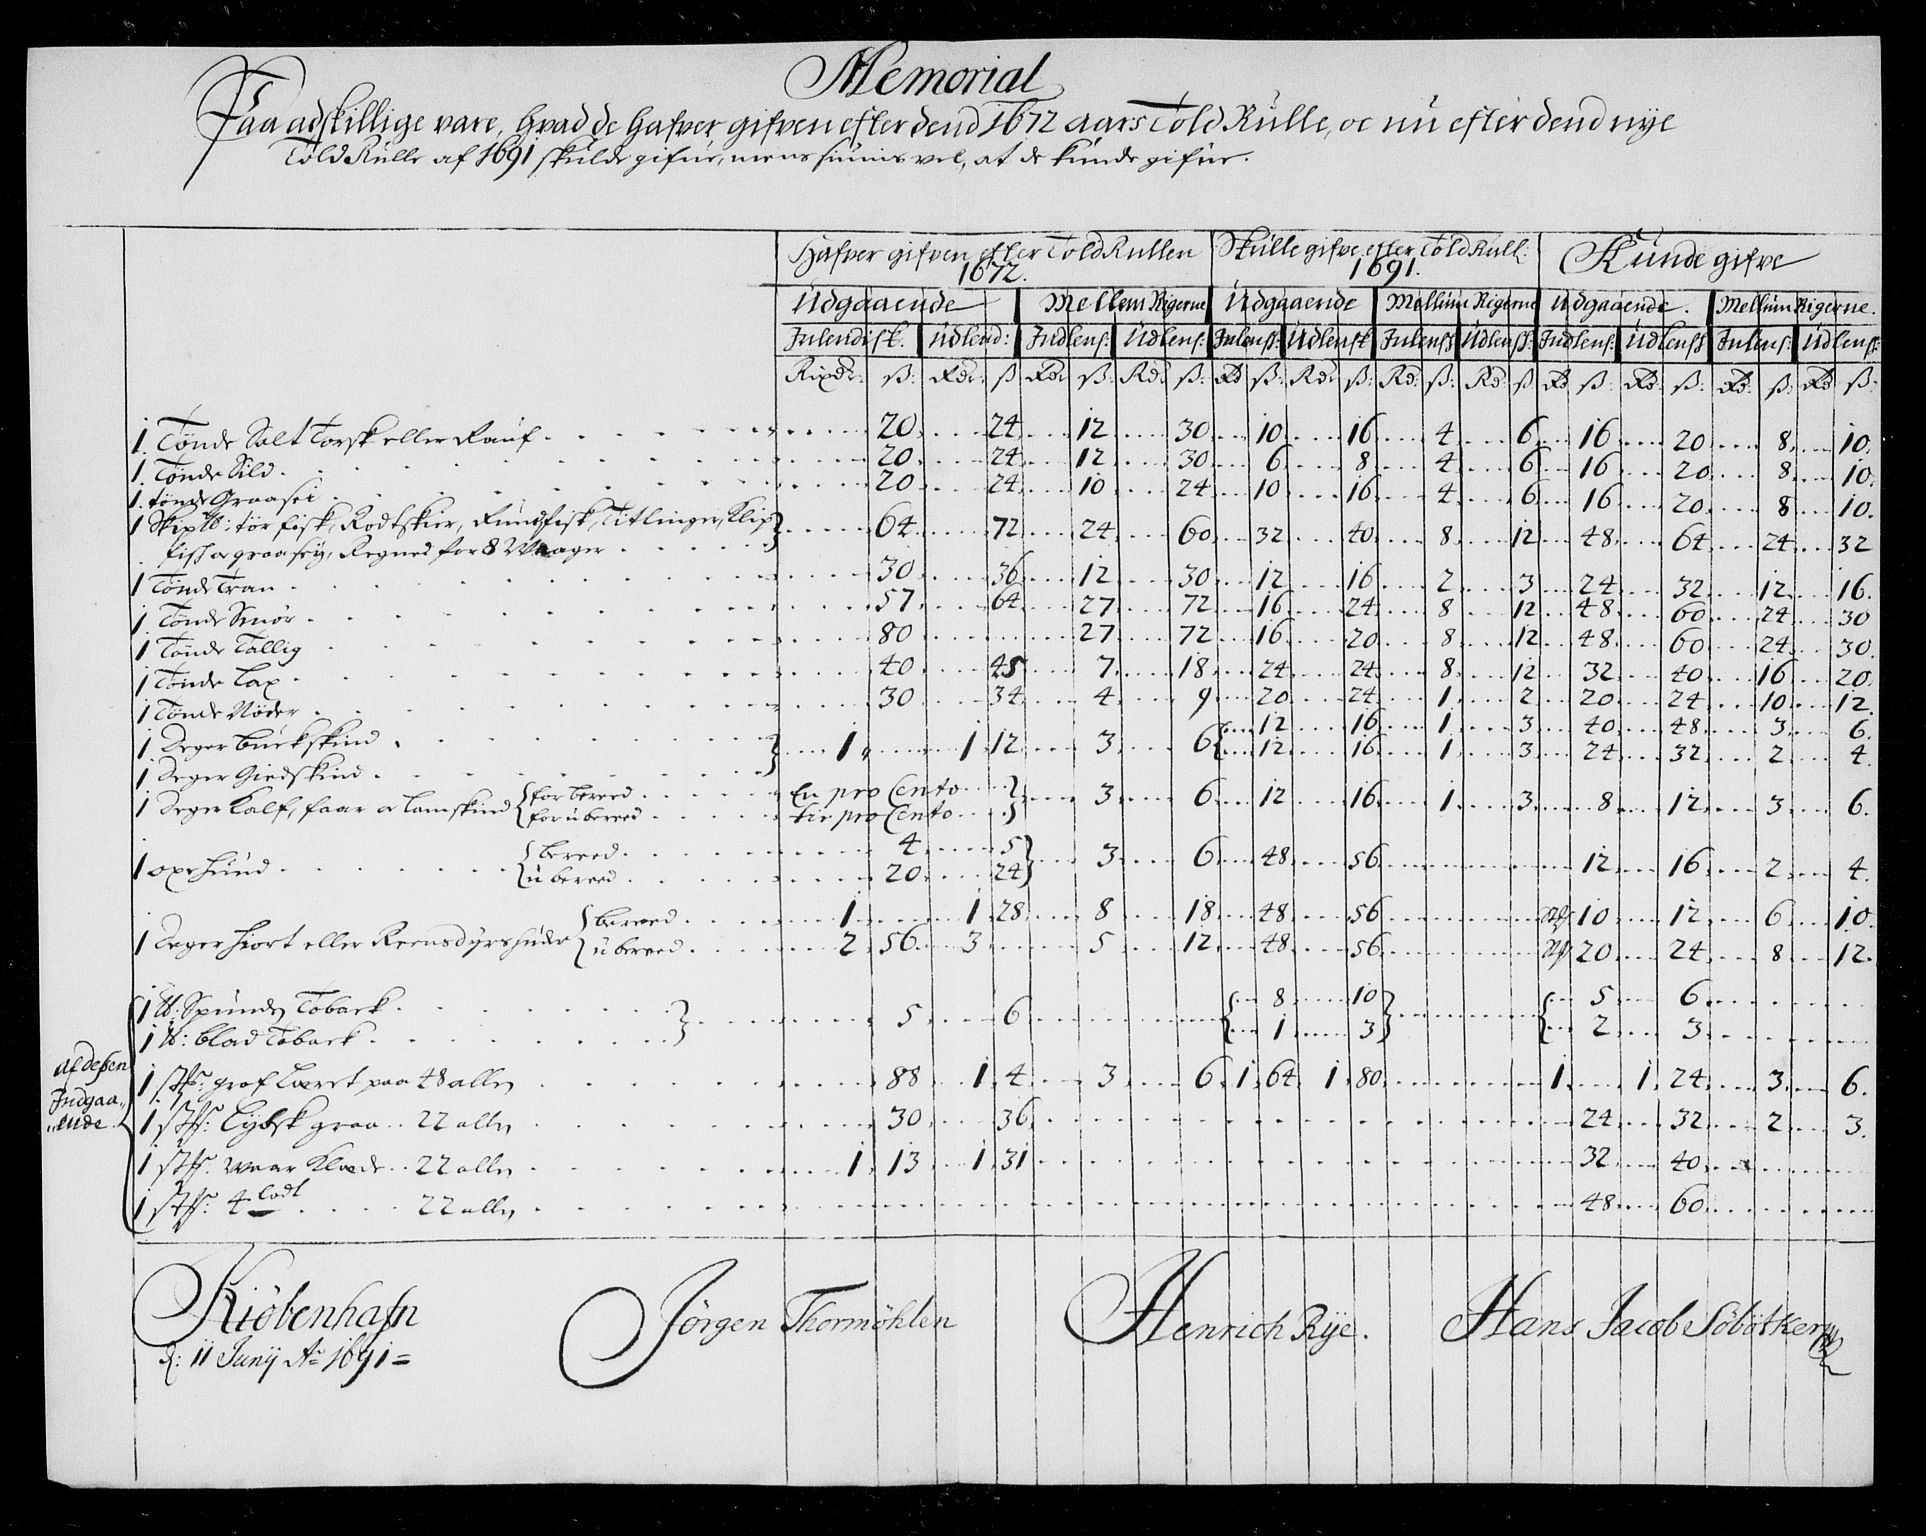 Memorial
Paa adskillige vare, hvad de hafver gifven efter dend 1672 aars Told Rulle, oc nu efter dend nye
Told Rulle af 1691 skulde gifue, mens siunis vel, at de kunde gifue.
Hafver gifven efter Told Rullen 1672. Skulle gifve efter Told Rull: 1691. Kunde gifve
Udgaaende Mellem Rigerne Udgaaende Mellum Rigerne Udgaaende. Mellum Rigerne.
Inlendisk. Udlend: Indlens: Udlens: Inlensk: Udlensk Inlensk Udlensk: Indlens: Udlensk Inlens: Udlensk:
Rixdr: ß: Rdr: ß Rdr ß: Rd: ß: Rd ß: Rd: ß: Rd: ß: Rd: ß Rd ß: Rd: ß: Rd: ß: Rd ß:
1. Tønde Salt Torsk eller Rauf 20 24 12 30 10 16 4 6 16 20 8 10.
1. Tønde Sild 20 24 12 30 6 8 4 6 16 20 8 10.
1. tønde Graasei 20 24 10 24 10 16 4 6 16 20 8 10.
1 Skip ℔: tør fisk, Rodtskier, Rundfisk, Titlinger, Klip
fisk oc graasey, Regned for 8 Waager 64 72 24 60 32 40 8 12 48 64 24 32
1 Tønde Tran 30 36 12 30 12 16 2 3 24 32 12 16.
1 Tønde Smør 57 64 27 72 16 24 8 12 48 60 24 30
1 Tønde Tallig 80 27 72 16 20 8 12 48 60 24 30.
1 Tønde Lax 40 45 7 18 24 24 8 12 32 40 16 20.
1 Tønde Nøder 30 34 4 9 20 24 1 2 20 24 10 12.
1 Deger buckskind 1 1 12 3 6 12 16 1 3 40 48 3 6.
1 Deger Giedskind 12 16 1 3 24 32 2 4.
1 Deger Kalf, faar oc Lamskind forbereed En pro Cento 3 6 12 16 1 3 8 12 3 6.
forubereed tie pro Cento
1 oxehuud bereed 4 5 3 6 48 56 12 16 2 4.
ubereed 20 24
1 Deger Hiort eller Reensdyrshuder bereed 1 1 28 8 18 48 56 10 12 6 10.
ubereed 2 56 3 5 12 48 56 20 24 8 12.
1 ℔: Spunden Toback 5 6 8 10 5 6
1 ℔: blad Toback 1 3 2 3
af deßen
Indgaa„
„ende.
1 stß: grof Lærret paa 48 allen 88 1 4 3 6 1 64 1 80 1 1 24 3 6.
1 stß: Lybsk graa 22 allen 30 36 24 32 2 3.
1 stß: Waar Klæde 22 allen 1 13 1 31 32 40
1 stß: 4 Lodt 22 allen 48 60
Kiöbenhafn
d: 11 Junij Ao 1691=
Jörgen Thormöhlen Henrich Rÿe. Hans Jacob Söbötker